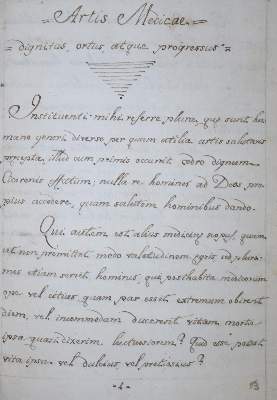 = Artis Medicae =
= dignitas, ortus atque progressus =
Instituenti mihi referre plura, quæ sunt hu-
mano generi diverso per quam utilia artis salutaris
præcepta, illud cum primis occurrit odro dignum
Ciceronis effatum; nulla re homines ad Deos pro-
pius accedere, quam salutem hominibus dando.
Qui autem est alius medicinæ scopus, quam
ut non promittat modo valetudinem ægris, ad pluri-
mos etiam servet homines, qui posthabita medicorum
ope vel citius, quam par esset extremum obirent
diem, vel incommodam ducerent vitam, morte
ipsa, quasi dixerim luctuosiorem? Quid esse potest
vita ipsa vel dulcius, vel pretiosius?
- 1 -